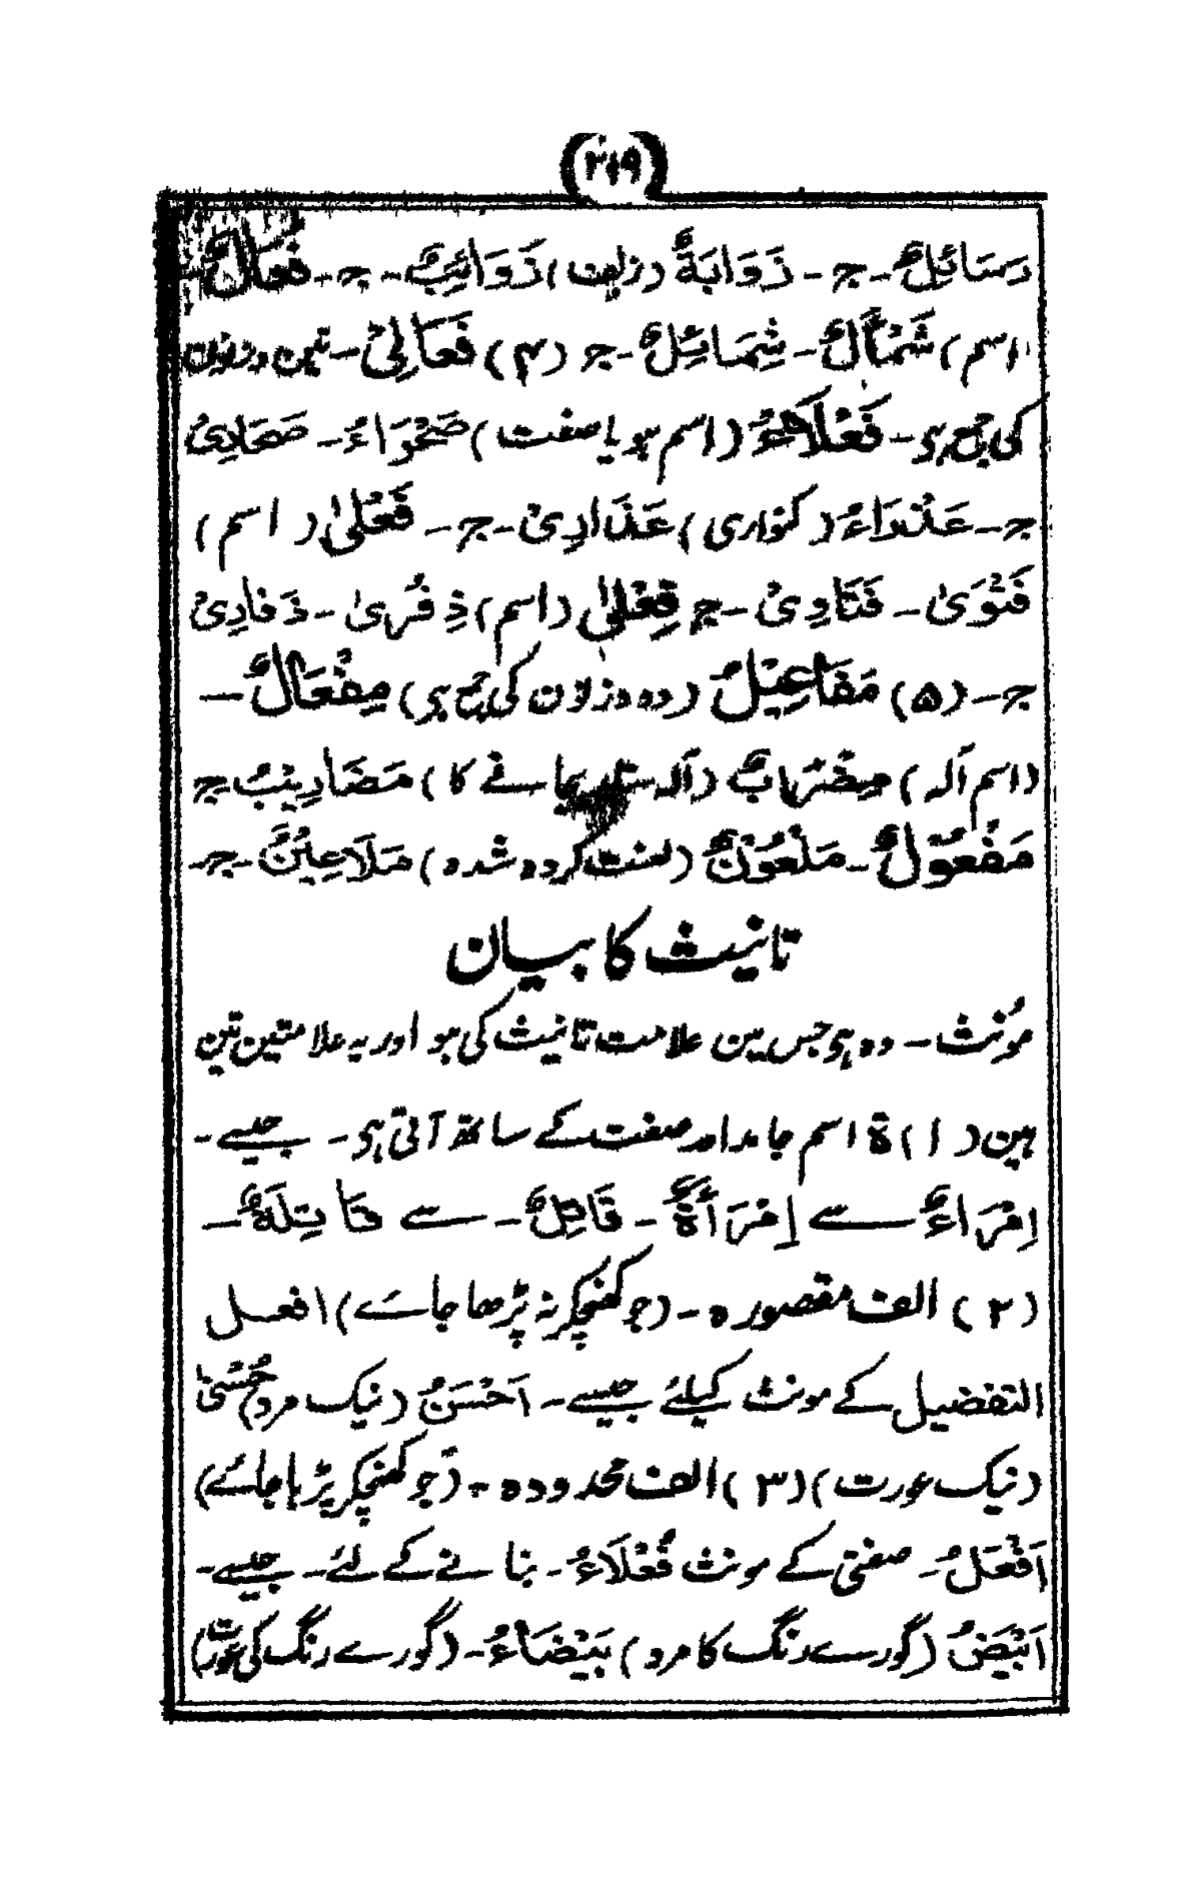 (۳۱۹)
رَسَائِلُ - جـ - ذَوَابَةٌ (زلف) ذَوَائِبُ - جـ - فَعَالٌ
(اسم) شَمَالٌ - شَمَائِلُ - جـ (۴) فَعَالِیْ - تین وزنون
کی جمع ہی - فَعْلَاءُ (اسم ہو یا صفت) صَحْرَاءُ - صَحَارِیْ
جـ - عَذْرَاءُ (کنواری) عَذَارِیْ - جـ - فَعْلٰی (اسم)
فَتْوَیٰ - فَتَاوِیْ - جـ فِعْلٰی (اسم) ذِفْرَیٰ - ذَفَارِیْ
جـ - (۵) مَفَاعِیْلُ (دو وزنون کی جمع ہی) مِفْعَالٌ -
(اسم آلہ) مِضْرَابٌ (آلہ ستار بجانے کا) مَضَارِیْبُ جـ
مَفْعُوْلٌ - مَلْعُوْنٌ (لعنت کردہ شدہ) مَلَاعِیْنُ - جـ
تانیث کا بیان
مُؤنث - وہ ہی جس مین علامت تانیث کی ہو اور یہ علامتین تین
ہین (۱) ۃ اسم جامد اور صفت کے ساتھ آتی ہی - جیسے -
اِمْرَاءٌ سے اِمْرَأَۃٌ - قَاتِلٌ - سے قَاتِلَۃٌ -
(۲) الف مقصورہ - (جو کھنچکر نہ پڑھا جاے) افعل
التفضیل کے مونث کیلئے جیسے - اَحْسَنُ (نیک مرد) حُسْنیٰ
(نیک عورت) (۳) الف ممدودہ - (جو کھنچکر پڑہا جائے)
اَفْعَلُ - صفتی کے مونث فَعْلَاءُ - بنانے کے لئے - جیسے -
اَبْیَضُ (گورے رنگ کا مرد) بَیْضَاءُ - (گورے رنگ کی عورت)